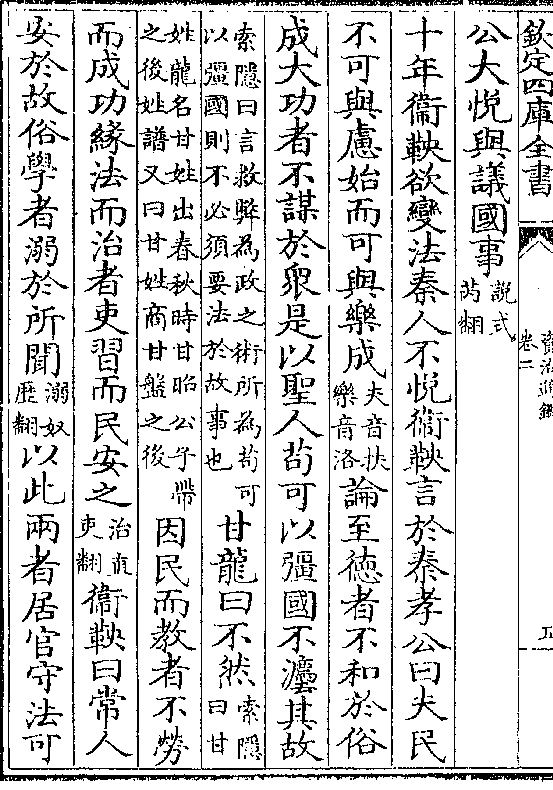 欽定四庫全書
資治通鑑
卷二
公大悦與議國事說式芮翻
十年衞鞅欲變法秦人不悦衞鞅言於秦孝公曰夫民
不可與慮始而可與樂成夫音扶樂音洛論至徳者不和於俗
成大功者不謀於眾是以聖人苟可以彊國不灋其故
索隱曰言救弊為政之術所為苟可以彊國則不必須要法於故事也甘龍曰不然索隱曰甘
姓龍名甘姓出春秋時甘昭公子帶之後姓譜又曰甘姓商甘盤之後因民而教者不勞
而成功緣法而治者吏習而民安之治直吏翻衞鞅曰常人
安於故俗學者溺於所聞溺奴歴翻以此兩者居官守法可